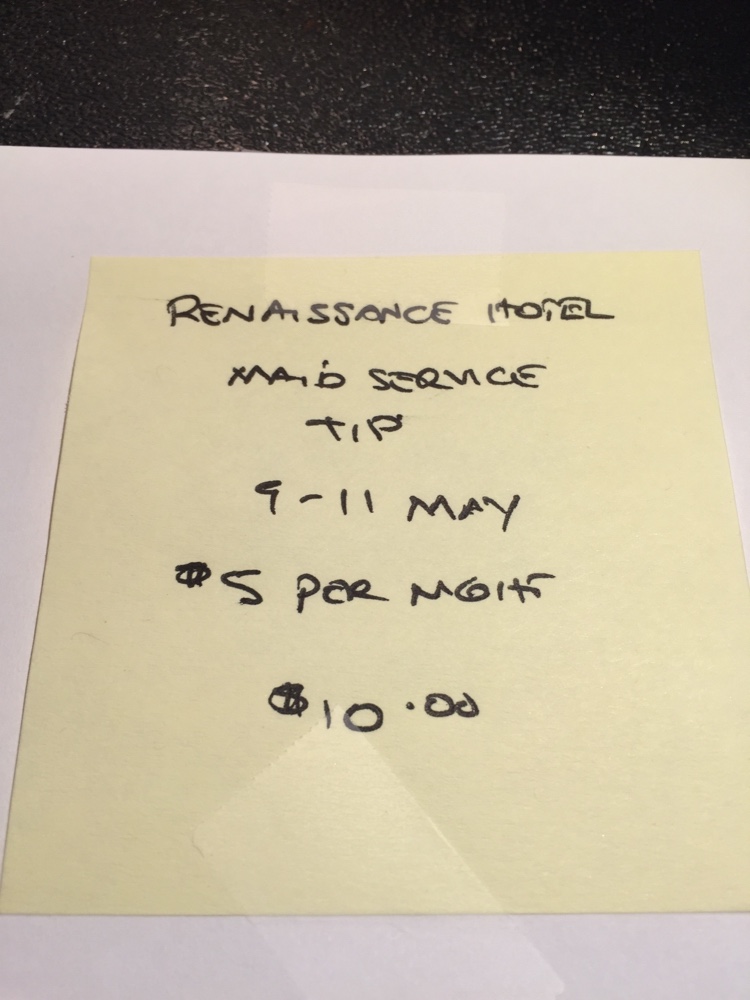 RENAISSANCE HOTEL
MAID SERVICE
TIP
9-11 MAY
$5 PER NIGHT
$10.00